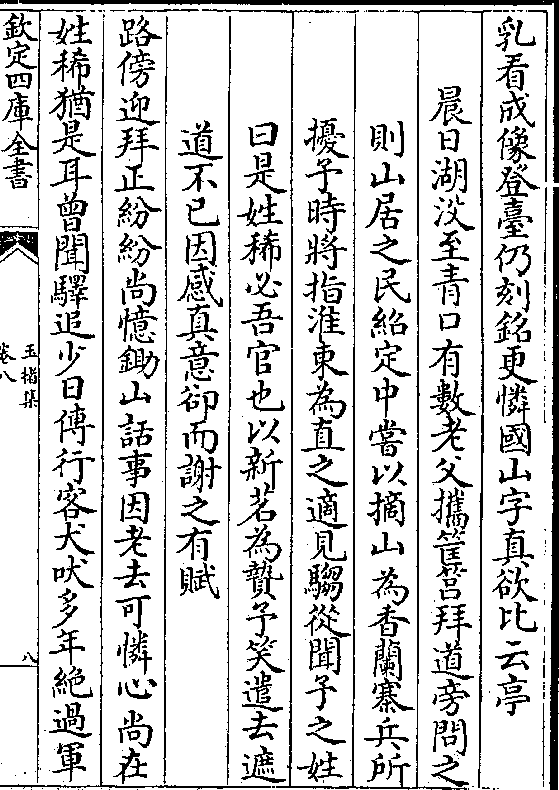 乳看成像登臺仍刻銘更憐國山字真欲比云亭
晨日湖汊至青口有數老父攜筐筥拜道旁問之
則山居之民紹定中嘗以摘山為香蘭寨兵所
擾予時將指淮東為直之適見騶從聞予之姓
曰是姓稀必吾官也以新茗為贄予笑遣去遮
道不已因感真意卻而謝之有賦
路傍迎拜正紛紛尚憶鋤山話事因老去可憐心尚在
姓稀猶是耳曾聞驛追少日傳行客犬吠多年絶過軍
欽定四庫全書
玉楮集
卷八
八